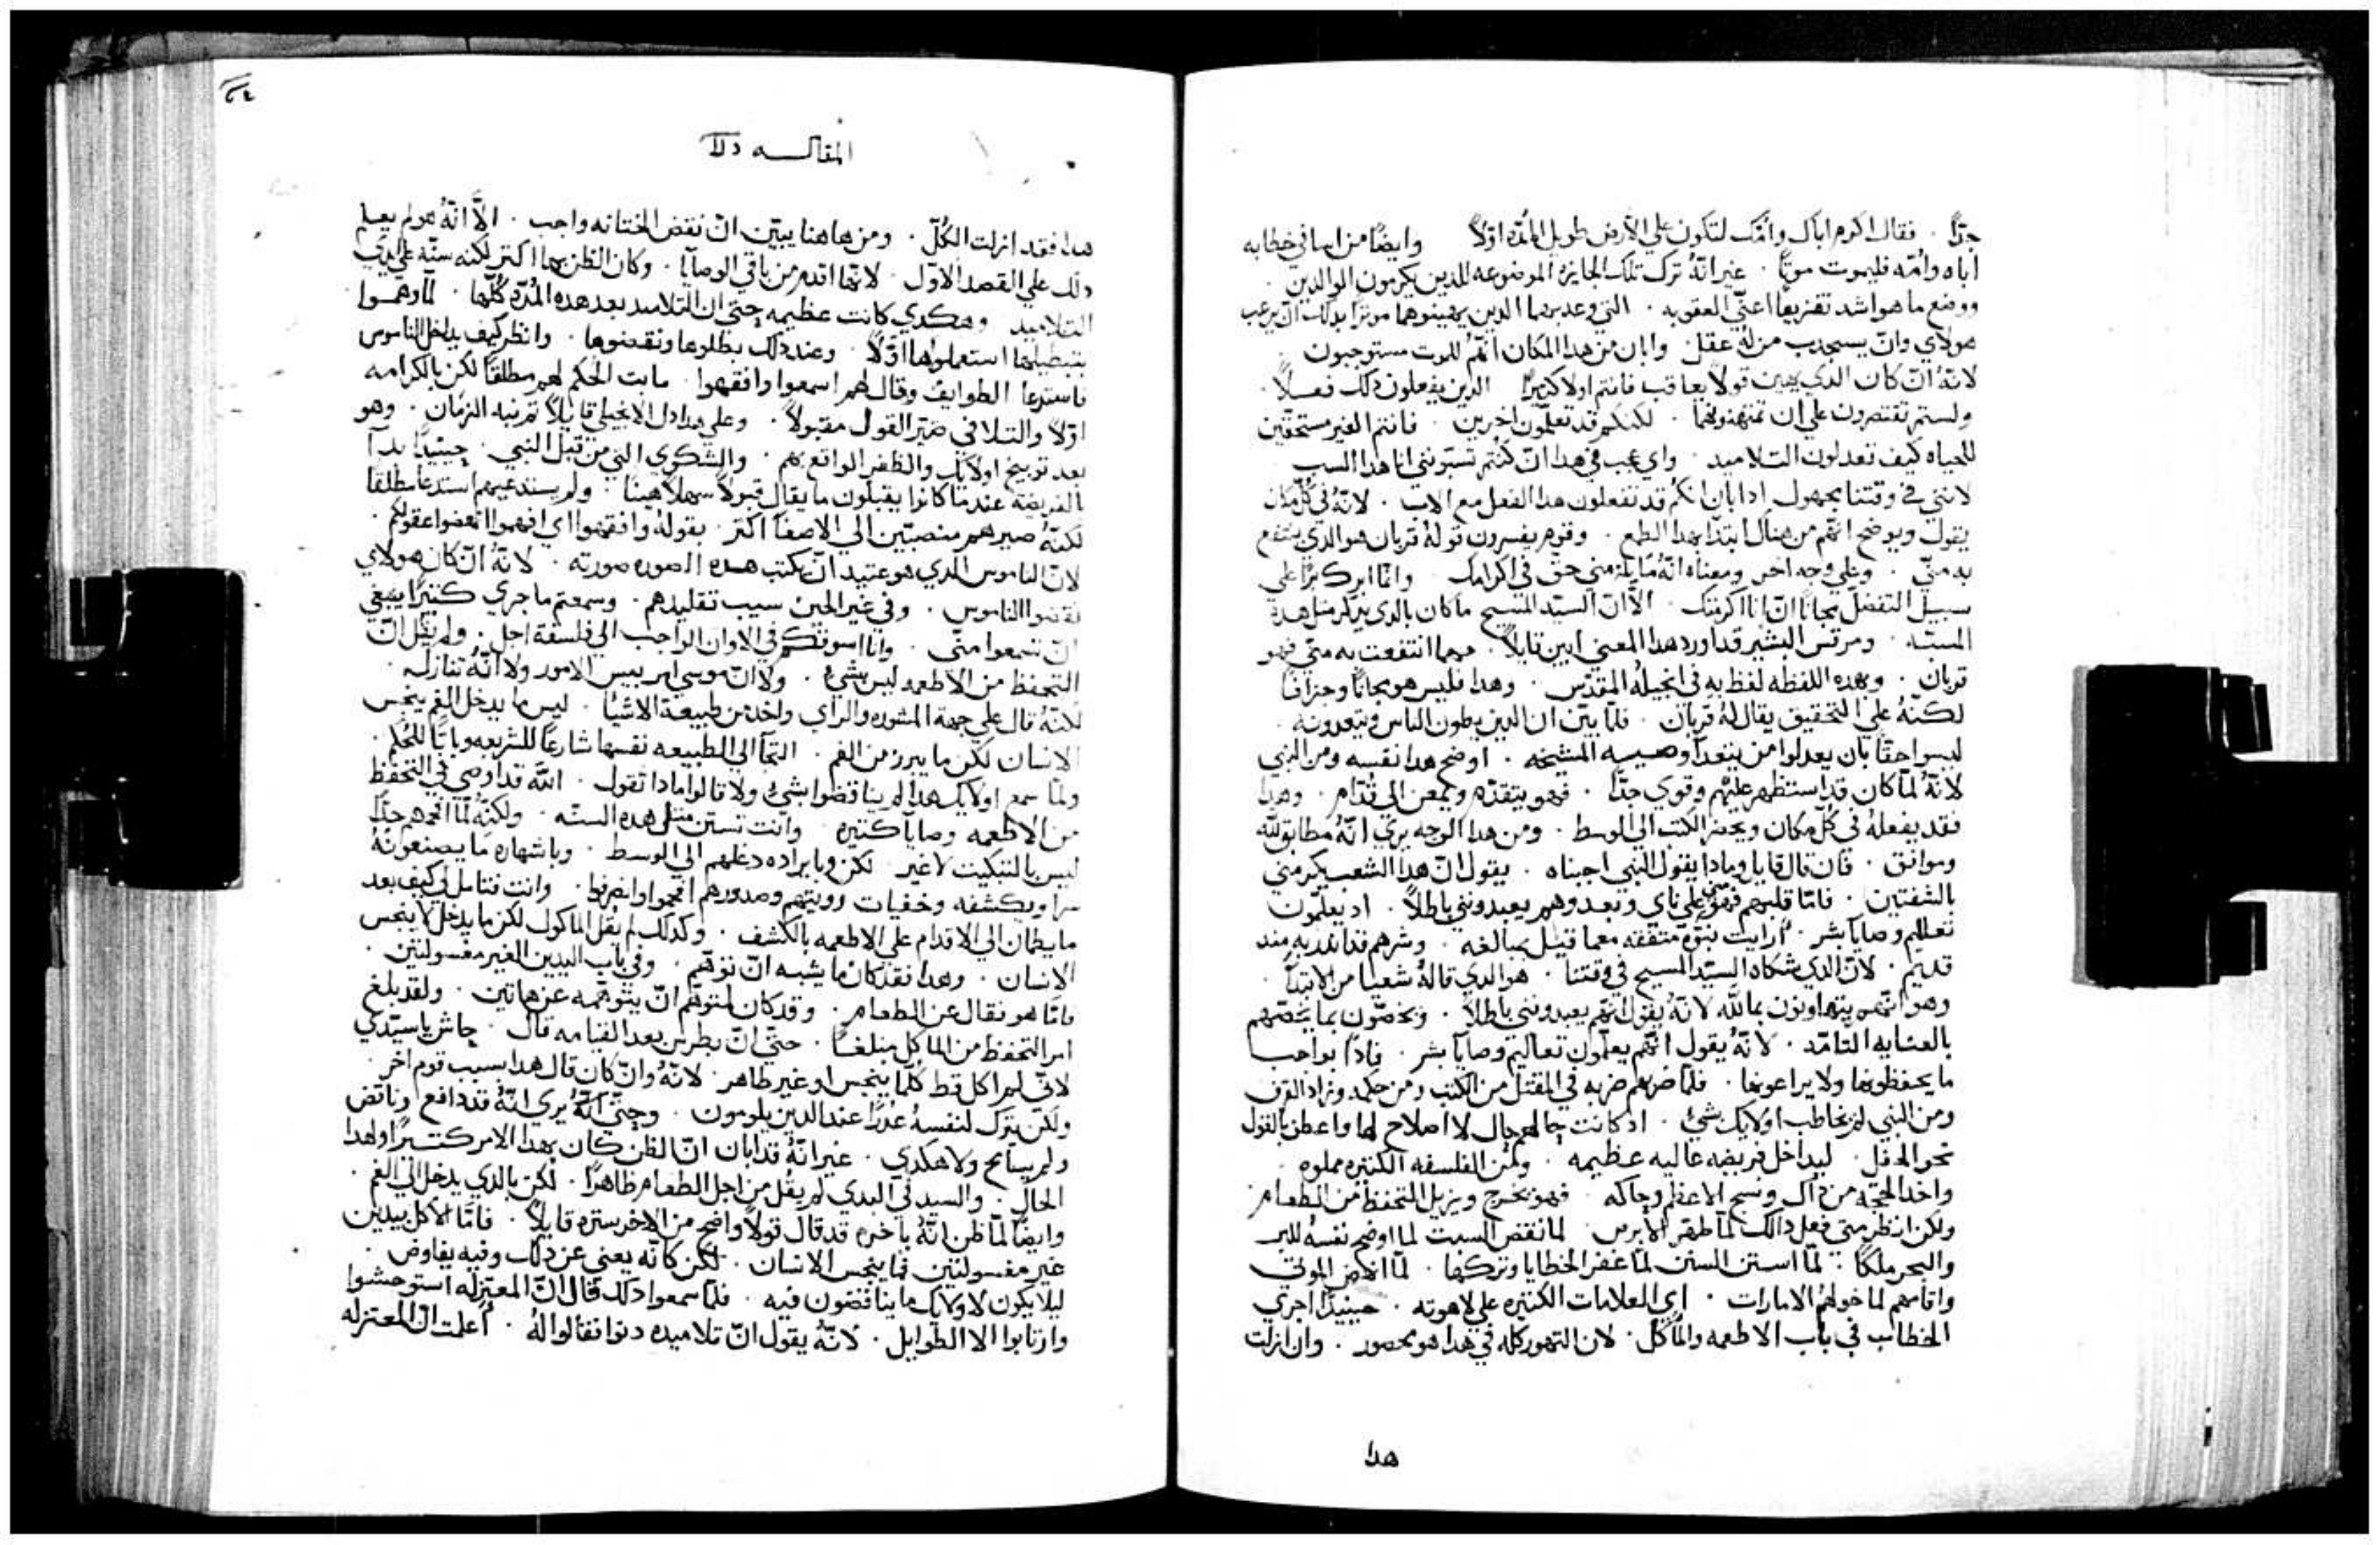 جدًّا . فقال اكرم اباك وامّك لتكون علي الأرض طويل المُدّه اوّلاً وايضًا من اسا في خطابه
اباه وامّه فليموت موتًا . غير انّهُ ترك تلك الجايزه الموضوعه للدين يكرمون الوالدين .
ووضع ما هو اشد تفزيعًا اعني العقوبه . التي وعد بهما الدين يهينوهما موثرًا بدلك انّ يرعب
هولاي وانّ يستجدب من لهُ عقل . وابان من هدا المكان انّهم للموت مستوجبون
لانّهُ انّ كان الدي يهين قولاً يعاقب فانتم اولا كثيرًا الدين يفعلون دلك فعلاً .
ولستم تقتصرون علي ان تمتهنوهما . لكنكم قد تعلّمون اخرين . فانتم الغير مستحقّين
للحياه كيف تعدلون التلاميد . واي عجب في هدا انّ كُنتم تسبّونني انا هدا السب
لانني في وقتنا مجهول ادا بان انكم قد تفعلون هدا الفعل مع الاب . لانّهُ في كُلّ مكان
يقول ويوضح انّهم من هناك ابتدّا بهدا الطمع . وقوم يفسرون قولهُ قربان هو الدي ينتفع
به منّي . وعلي وجه اخر ومعناه انّهُ ما يلزمني حق في اكرامك وانّما ابرك برًّا علي
سبيل التفضل مجانًا انّ انا اكرمتك . الاّ انّ السيّد المسيح ما كان بالدي يدكر مثل هده
المسبّه . ومرقس البشير قد اورد هدا المعني ابين قايلاً . مهما انتفعت به منّي فهو
قربان . وبهده اللفظه لفظ به في انجيلهُ المقدّس . وهدا فليس هو مجانًا وجزافًا
لكنّهُ علي التحقيق يقال لهُ قربان . فلمّا بيّن ان الدين يطون الناس ويتعدونه
ليسوا حقًّا بان يعدلوا من يتعدّا وصيه المشيخه . اوضح هدا نفسه ومن النبي
لانّهُ لمّا كان قد استظهر عليهم وقوي جدًّا . فهو يتقدّم ويمعن الي قدّام . وهدا
فقد يفعلهُ في كُلّ مكان ويحضر الكتب الي الوسط . ومن هدا الوجه يري انّهُ مطابق للّه
وموافق . فان قال قايل ومادا يقول النبي اجبناه . يقول انّ هدا الشعب يكرمني
بالشفتين . فامّا قلبهم فهو علي ناي منّي وبعد وهم يعبدونني باطلاً . اد يعلّمون
تعاليم وصايا بشر . أرايت نبوّه متّفقه معما قيل مبالغه . وشرهم قد اندر به مند
قديم . لانّ الدي شكاه السيّد المسيح في وقتنا . هو الدي قالهُ شعيا من الابتدآ
وهو انّهم يتهاونون بما للّه لانّهُ يقول انّهم يعبدونني باطلاً . ويخصّون بما يخصّهم
بالعنايه التامّه . لانّهُ يقول انّهم يعلّمون تعاليم وصايا بشر . فادًا بواجب
ما يحفظونها ولا يراعونها . فلمّا ضربهم ضربه في المقتل من الكتب ومن حكمه
ومن النبي لم يخاطب اولايك بشيء . اد كانت حالهم حال لا اصلاح لها واعطف بالقول
نحو المحفل . ليداخل فريضه عاليه عظيمه . ومن الفلسفه الكتيره مملوه .
واخد الحجّه من داك ونسج الاعظم وحاكه . فهو يخرج ويزيل التحفظ من الطعام .
ولكن انظر متي فعل دالك لمّا طهّر الابرص لما نقض السبت لما اوضح نفسهُ للبر
والبحر ملكًا . لمّا استن السنن لمّا غفر الخطايا وتركها . لمّا انهض الموتي
واقامهم لما خولهم الامارات . اي العلامات الكتيره علي لاهوته . حينيدًا اجري
الخطاب في باب الاطعمه والماكل . لان التهود كله في هدا هو محصور . وان ازلت
هدا
المقالــه
هدا فقد ازلت الكُلّ . ومن هاهنا يبيّن انّ نقض الختانه واجب . الاّ انّهُ هو لم يعلم
دلك علي القصد الاوّل . لانّها اقدم من باقي الوصايا . وكان الظن بها اكتر لكنه سنّه علي يدي
التلاميد وهكدي كانت عظيمه حتّي ان التلاميد بعد هده المُدّه كُلّها . لمّا وهموا
بتبطيلها استعملوها اوّلاً . وعند دلك بطلوها ونقضوها . وانظر كيف يداخل الناموس
فاستدعا الطوايف وقال لهم اسمعوا وافقهوا . ما بت الحُكم لهم مطلقًا لكن بالكرامه
اوّلاً والتلافي صيّر القول مقبولاً . وعلي هدا دل الانجيلي قايلاً ثم نبه الزمان . وهو
بعد توبيخ اولايك والظفر الواقع بهم . والشكوي التي من قبل النبي . حينيدًا بدآ
بالفريضه عندما كانوا يقبلون ما يقال قبولاً سهلاً هينًا . ولم يستدعيهم استدعا مطلقًا
لكنّهُ صيرهم منصتين الي الاصغا اكتر . بقولهُ وافقهوا اي افهموا انهضوا عقولكم .
لانّ الناموس الدي هو عتيد انّ يكتب هده الصوره صورته . لانّهُ انّ كان هولاي
نقضوا الناموس . وفي غير الحين سبب تقليدهم . وسمعتم ما جري كتيرًا ينبغي
انّ تسمعوا منّي . وانا اسوقكم في الاوان الواجب الي فلسفة اجل . ولم يقل انّ
التحفظ من الاطعمه ليس بشيء . ولا انّ موسي امر ببيس الامور ولا انّهُ تنازله
لانّهُ قال علي جهة المشوره والراي واخد من طبيعة الاشيا . ليس ما يدخل الفم ينجس
الانسان لكن ما يبرز من الفم . التجآ الي الطبيعه نفسها شارعًا للشريعه وباتًّا للحُكم .
ولمّا سمع اولايك هدا لم يناقضوا بشيء ولا قالوا مادا تقول . اللّه قد اوصي في التحفظ
من الاطعمه وصايا كتيره وانت تستن مثل هده السنّه . ولكنّهُ لمّا افحمهم جدًّا
ليس بالتبكيت لا غير لكن وبايراده دغلهم الي الوسط . وباشهاره ما يصنعونهُ
سرا وبكشفه وخفيات رويتهم وصدورهم افحموا وانصرفوا . وانت فتامل لي كيف بعد
ما يطمان الي الاقدام علي الاطعمه بالكشف . وكدلك لم يقل الماكول لكن ما يدخل لا ينجس
الانسان . وهدا فقد كان ما يشبه انّ نوهّم . وفي باب اليدين الغير مغسولتين .
فامّا هو فقال عن الطعام . وقد كان لمتوهّم انّ يتوهّمه عن هاتين . ولقد بلغ
امر التحفظ من الماكل مبلغًا . حتّي انّ بطرس بعد القيامه قال . حاش يا سيّدي
لانّي لم اكل قط كُلّما ينجس او غير طاهر . لانّهُ وانّ كان قال هدا بسبب قوم اخر .
ولكن يترك لنفسهُ عُدرًا عند الدين يلومون . وحتّي انّهُ يري انّهُ قد دافع وناقض
ولم يسامح ولا هكدي . غير انّهُ قد ابان انّ الظن كان بهدا الامر كتيرًا ولهدا
الحال . والسيد في البدي لم يقُل من اجل الطعام ظاهرًا . لكن بالدي يدخل الي الفم .
وايضًا لمّا ظن انّهُ باخره قد قال قولاً واضح من الاخر ستره قايلاً . فامّا الاكل بيدين
غير مغسولتين فما ينجس الانسان . لكن كانّه يعني عن دلك وفيه يفاوض .
ليلا يكون لاولايك ما يناقضون فيه . فلمّا سمعوا دلك قال انّ المعتزله استوحشوا
وارتابوا الا الطوايل . لانّهُ يقول انّ تلاميده دنوا فقالوا لهُ . أعلمت انّ المعتزله